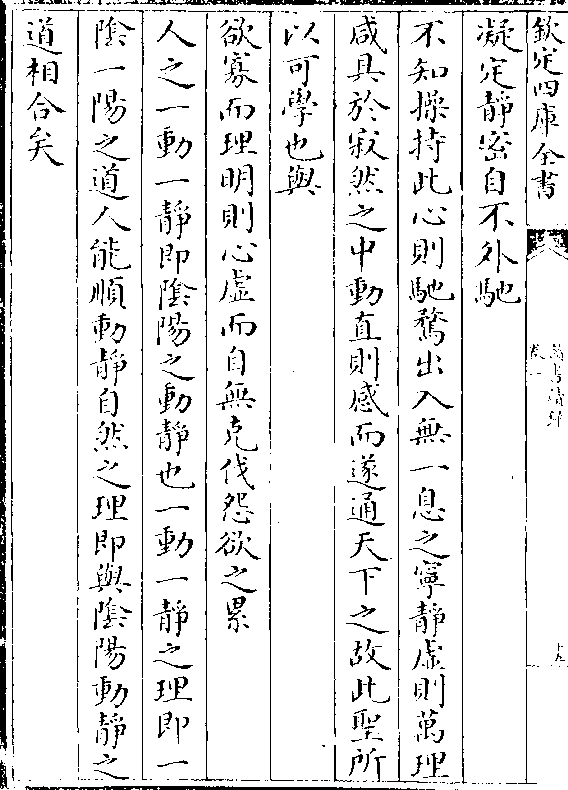 欽定四庫全書
凝定靜密自不外馳
不知操持此心則馳騖出入無一息之寧靜虛則萬理
咸具於寂然之中動直則感而遂通天下之故此聖所
以可學也與
欲寡而理明則心虛而自無克伐怨欲之累
人之一動一靜即陰陽之動靜也一動一靜之理即一
陰一陽之道人能順動靜自然之理即與陰陽動靜之
道相合矣